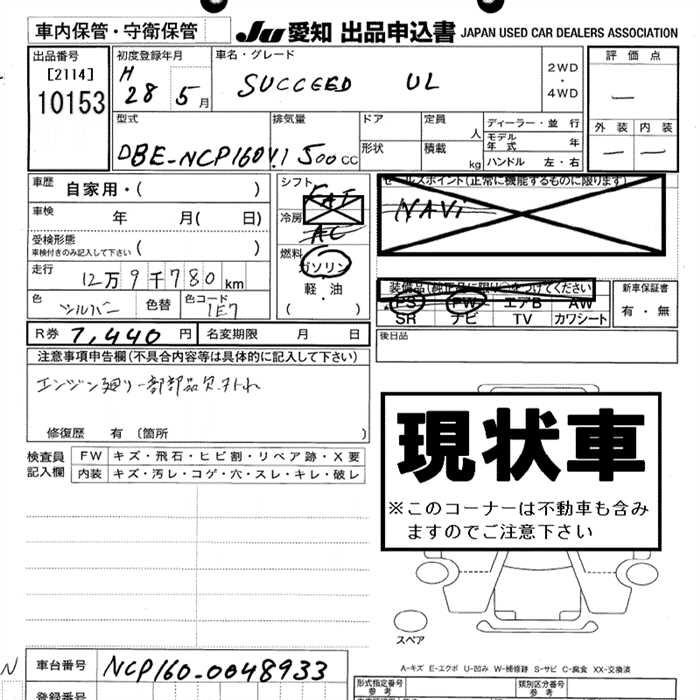 車内保管・守衛保管
JU 愛知 出品申込書 JAPAN USED CAR DEALERS ASSOCIATION
出品番号
[2114]
10153
初度登録年月
H 28 5 月
車名・グレード
SUCCEED UL
2WD
・
4WD
評価点
外装 内装
型式
DBE-NCP160V
排気量
1500 CC
ドア
形状
定員
人
積載
kg
ディーラー・並行
モデル年式 年
ハンドル 左・右
車歴 自家用・( )
車検 年 月( 日)
受検形態
車検付きのみ記入して下さい ( )
走行
12万9千780 km
色
シルバー
色替
色コード
1E7
シフト
FAT
冷房
AC
燃料
ガソリン
・
軽・油
( )
セールスポイント(正常に機能するものに限ります)
NAVi
装備品(純正品に限り○をつけてください)
PS PW エアB AW
SR ナビ TV カワシート
新車保証書
有・無
R券 7,440 円 名変期限 月 日
後日品
注意事項申告欄(不具合内容等は具体的に記入して下さい)
エンジン廻り一部部品欠、外れ
修復歴 有 〔箇所 〕
検査員
記入欄
FW キズ・飛石・ヒビ割・リペア跡・X要
内装 キズ・汚レ・コゲ・穴・スレ・キレ・破レ
現状車
※このコーナーは不動車も含み
ますのでご注意下さい
スペア
A-キズ E-エクボ U-凹み W-補修跡 S-サビ C-腐食 XX-交換済
車台番号 NCP160-0048933
登録番号
形式指定番号
参考
類別区分番号
参考